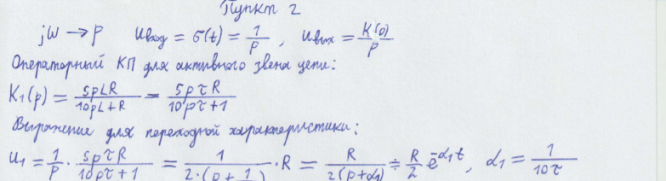 Пункт 2
jω → p  uвход = σ(t) = 1/p , uвых = K(p)/p
Операторный КП для активного звена цепи:
K₁(p) = 5pLR/(10pL+R) = 5pτR/(10pτ+1)
Выражение для переходной характеристики:
u₁ = 1/p · 5pτR/(10pτ+1) = 1/(2·(p+1 · R = R/(2(p+α₁) ÷ R/2 e^-α₁t , α₁ = 1/10τ